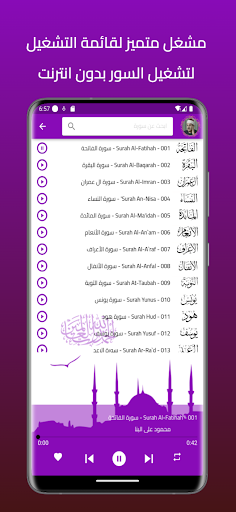 مشغل متميز لقائمة التشغيل
لتشغيل السور بدون انترنت
6:57
ابحث عن سورة
001 - Surah Al-Fatihah - سورة الفاتحة
الفاتحة
002 - Surah Al-Baqarah - سورة البقرة
البقرة
003 - Surah Al-Imran - سورة آل عمران
آل عمران
004 - Surah An-Nisa - سورة النساء
النساء
005 - Surah Al-Ma'idah - سورة المائدة
المائدة
006 - Surah Al-An'am - سورة الأنعام
الأنعام
007 - Surah Al-A'raf - سورة الأعراف
الأعراف
008 - Surah Al-Anfal - سورة الأنفال
الأنفال
009 - Surah At-Taubah - سورة التوبة
التوبة
010 - Surah Yunus - سورة يونس
يونس
011 - Surah Hud - سورة هود
هود
012 - Surah Yusuf - سورة يوسف
يوسف
013 - Surah Ar-Ra'd - سورة الرعد
الرعد
001 - Surah Al-Fatihah - سورة الفاتحة
محمود على البنا
0:00
0:42